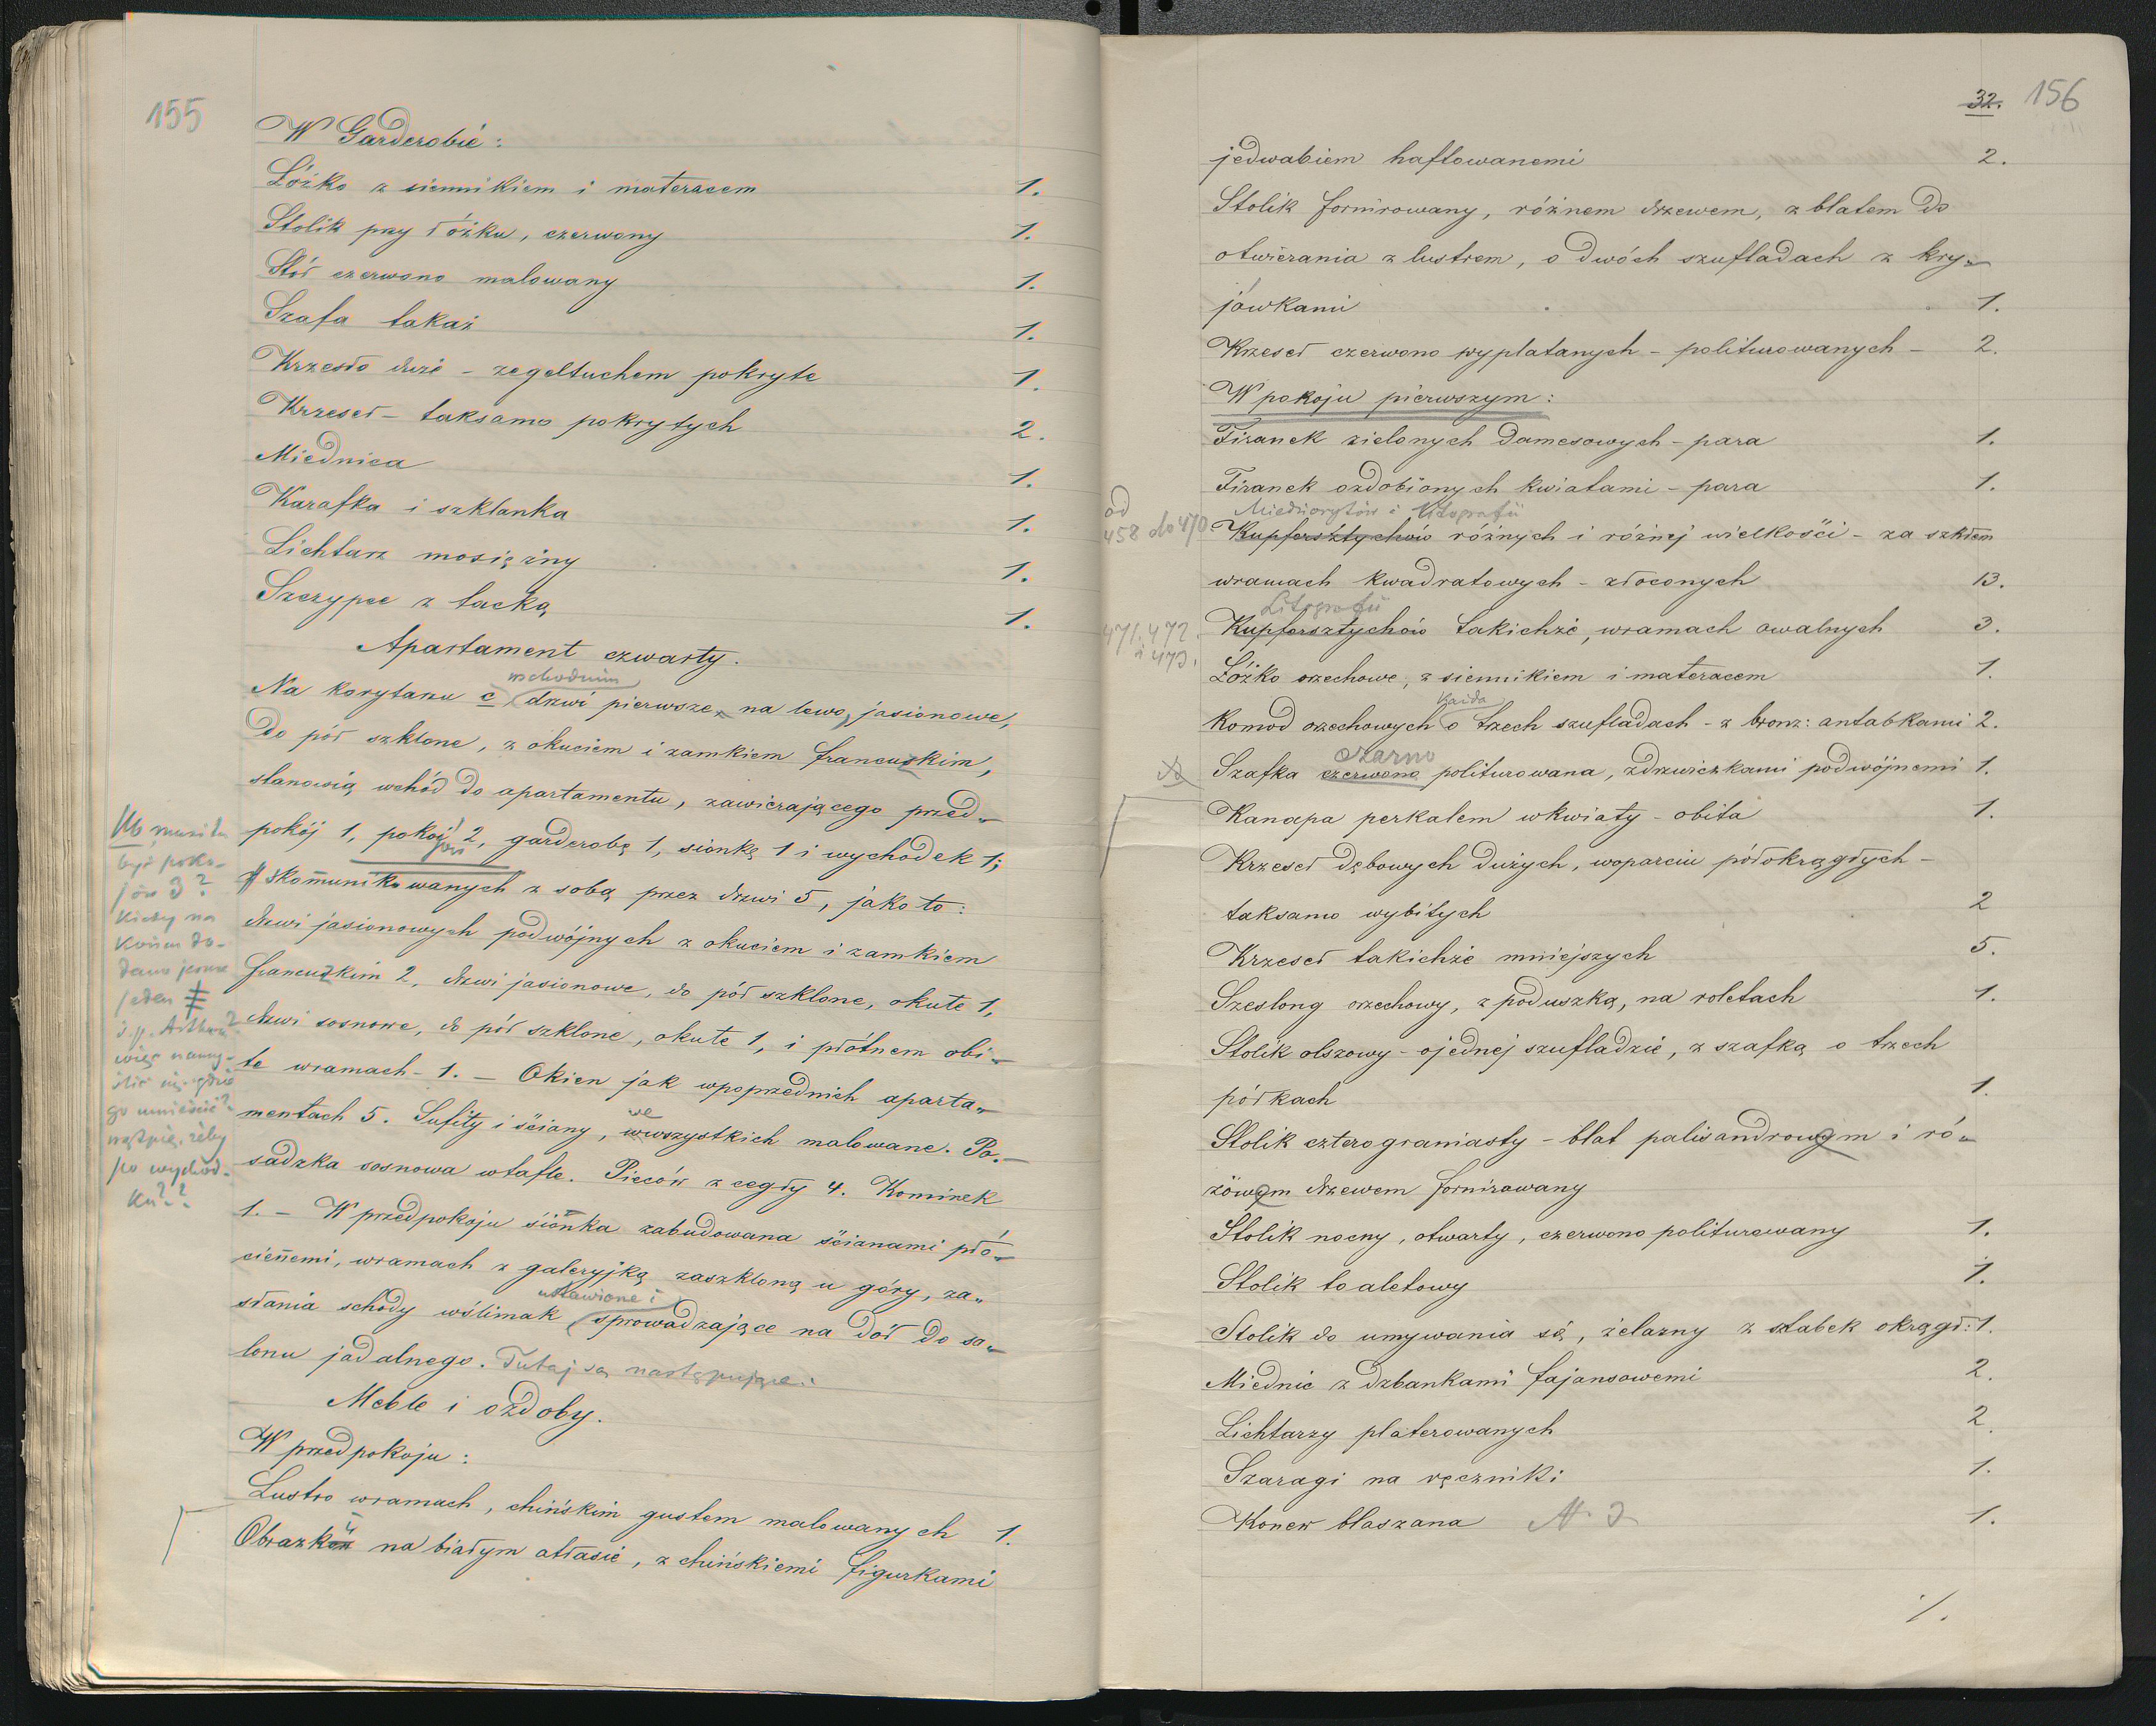 155
W Garderobie:
Łóżko z siennikiem i materacem 1.
Stolik przy łóżku, czerwony 1.
Stół czerwono malowany 1.
Szafa takaż 1.
Krzesło duże - zegeltuchem pokryte 1.
Krzeseł - taksamo pokrytych 2.
Miednica 1.
Karafka i szklanka 1.
Lichtarz mosiężny 1.
Szczypce z tacką 1.
Apartament czwarty.
wschodnim
Na korytarzu c drzwi pierwsze, na lewo, jasionowe,
do pół szklone, z okuciem i zamkiem francuzkim,
stanowią wchód do apartamentu, zawierającego przed-
pokój 1, pokoi 2, garderobę 1, sionkę 1 i wychodek 1;
skomunikowanych z sobą przez drzwi 5, jako to:
drzwi jasionowych podwójnych z okuciem i zamkiem
francuzkim 2, drzwi jasionowe, do pół szklone, okute 1,
drzwi sosnowe, do pół szklone, okute 1, i płótnem obi-
te wramach - 1. - Okien jak wpoprzednich aparta-
we
mentach 5. Sufity i ściany, wwszystkich malowane. Po-
sadzka sosnowa wtafle. Pieców z cegły 4. Kominek
1. - W przedpokoju sionka zabudowana ścianami płó-
ciennemi, wramach z galeryjką zaszkloną u góry, za-
ustawione i
słania schody wślimak sprowadzające na dół do sa-
lonu jadalnego. Tutaj są następujące:
Meble i ozdoby.
W przedpokoju:
Lustro wramach, chińskim gustem malowanych 1.
Obrazków na białym atłasie, z chińskiemi figurkami
być poko-
jów 3?
dano jeszcze
jeden
go umieścić?
wątpię, żeby
po wychod-
ku??
32. 156
jedwabiem haftowanemi 2.
Stolik fornirowany, różnem drzewem, z blatem do
otwierania z lustrem, o dwóch szufladach z kry-
jówkami 1.
Krzeseł czerwono wyplatanych - politurowanych - 2.
W pokoju pierwszym:
Firanek zielonych damesowych - para 1.
Firanek ozdobionych kwiatami - para 1.
od Miedziorytów i litografii
458 do 470. Kupfersztychów różnych i różnej wielkości - za szkłem
wramach kwadratowych - złoconych 13.
Litografii
471. 472. Kupfersztychów takichże, wramach owalnych 3.
i 473.
Łóżko orzechowe, z siennikiem i materacem 1.
każda
Komod orzechowych o trzech szufladach - z bronz: antabkami 2.
czarno
Szafka czerwono politurowana, zdrzwiczkami podwójnemi 1.
Kanapa perkalem wkwiaty - obita 1.
Krzeseł dębowych dużych, woparciu półokrągłych -
taksamo wybitych 2
Krzeseł takichże mniejszych 5.
Szeslong orzechowy, z poduszką, na roletach 1.
Stolik olszowy - ojednej szufladzie, z szafką o trzech
półkach 1.
Stolik czterograniasty - blat palisandrowym i ró-
żówym drzewem fornirowany
Stolik nocny, otwarty, czerwono politurowany 1.
Stolik toaletowy 1.
Stolik do umywania się, żelazny z sztabek okrągł: 1.
Miednic z dzbankami fajansowemi 2.
Lichtarzy platerowanych 2
Szaragi na ręczniki 1.
Konew blaszana 1.
·/.